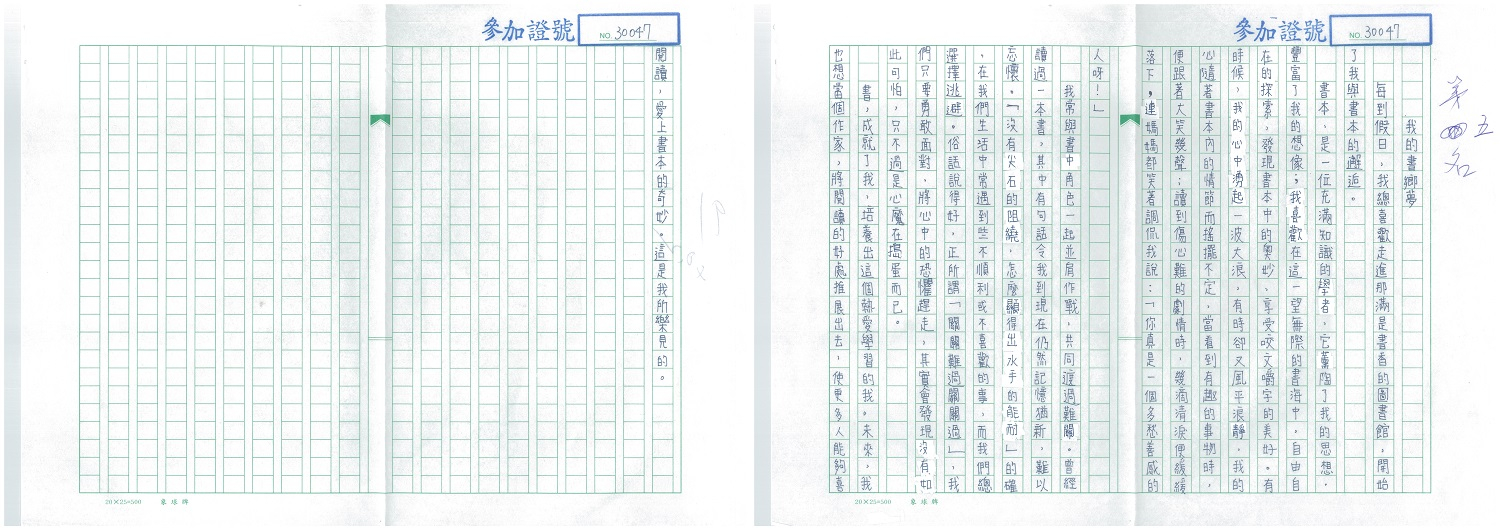 參加證號 NO. 30047
第五名
我的書鄉夢
每到假日，我總喜歡走進那滿是書香的圖書館，開始
了我與書本的邂逅。
書本、是一位充滿知識的學者，它薰陶了我的思想，
豐富了我的想像；我喜歡在這一望無際的書海中，自由自
在的探索，發現書本中的奧妙、享受咬文嚼字的美好。有
時候，我的心中湧起一波大浪，有時卻又風平浪靜，我的
心隨著書本內的情節而搖擺不定，當看到有趣的事物時，
便跟著大笑幾聲；讀到傷心難的劇情時，幾滴清淚便緩緩
落下，連媽媽都笑著調侃我說：「你真是一個多愁善感的
人呀！」
我常與書中角色一起並肩作戰，共同渡過難關。曾經
讀過一本書，其中有句話令我到現在仍然記憶猶新，難以
忘懷。「沒有尖石的阻繞，怎麼顯得出水手的能耐」的確
，在我們生活中常遇到些不順利或不喜歡的事，而我們總
選擇逃避。俗話說得好。正所謂「關關難過關關過」，我
們只要勇敢面對、將心中的恐懼趕走，其實會發現沒有如
此可怕，只不過是心魔在搗蛋而已。
書，成就了我，培養出這個熱愛學習的我。未來，我
也想當個作家，將閱讀的好處推展出去，使更多人能夠喜
20×25=500 象球牌
參加證號 NO. 30047
閱讀，愛上書本的奇妙。這是我所樂見的。
20×25=500 象球牌